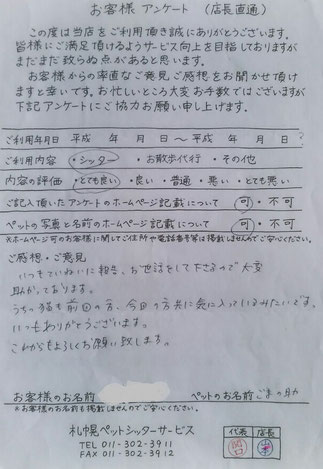 お客様 アンケート （店長直通）
この度は当店をご利用頂き誠にありがとうございます。
皆様にご満足頂けるようサービス向上を目指しておりますが
まだまだ致らぬ点があると思います。
お客様からの率直なご意見ご感想をお聞かせ頂け
ますと幸いです。お忙しいところ大変お手数ではございますが
下記アンケートにご協力お願い申し上げます。
ご利用年月日 平成 年 月 日 〜 平成 年 月 日
ご利用内容 ・シッター ・お散歩代行 ・その他
内容の評価 ・とても良い ・良い ・普通 ・悪い ・とても悪い
ご記入頂いたアンケートのホームページ記載について 可・不可
ペットの写真と名前のホームページ記載について 可・不可
※ホームページ可のお客様に関してご住所や電話番号等は掲載しませんのでご安心ください。
ご感想・ご意見
いつもていねいに報告、お世話をして下さるので大変
助かっております。
うちの猫も前回の方、今回の方共に気に入っているみたいです。
いつもありがとうございます。
これからもよろしくお願い致します。
お客様のお名前 ペットのお名前
※お客様のお名前も掲載しませんのでご安心ください。
札幌ペットシッターサービス
TEL 011-302-3911
FAX 011-302-3912
代表 店長